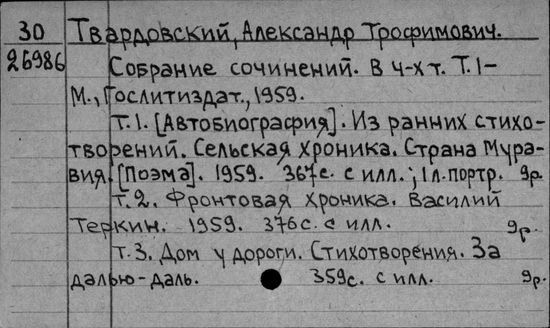 30 Твардовский, Александр Трофимович.
26986 Собрание сочинений. В 4-х т. Т.1-
М., Гослитиздат., 1959.
Т.1. [Автобиография]. Из ранних стихо-
творений. Сельская хроника. Страна Мура-
вия. [Поэма]. 1959. 367с. с илл.; 1л. портр. 9р.
Т.2. Фронтовая хроника. Василий
Теркин. 1959. 376с. с илл. 9р.
Т.3. Дом у дороги. Стихотворения. За
далью-даль. 359с. с илл. 9р.